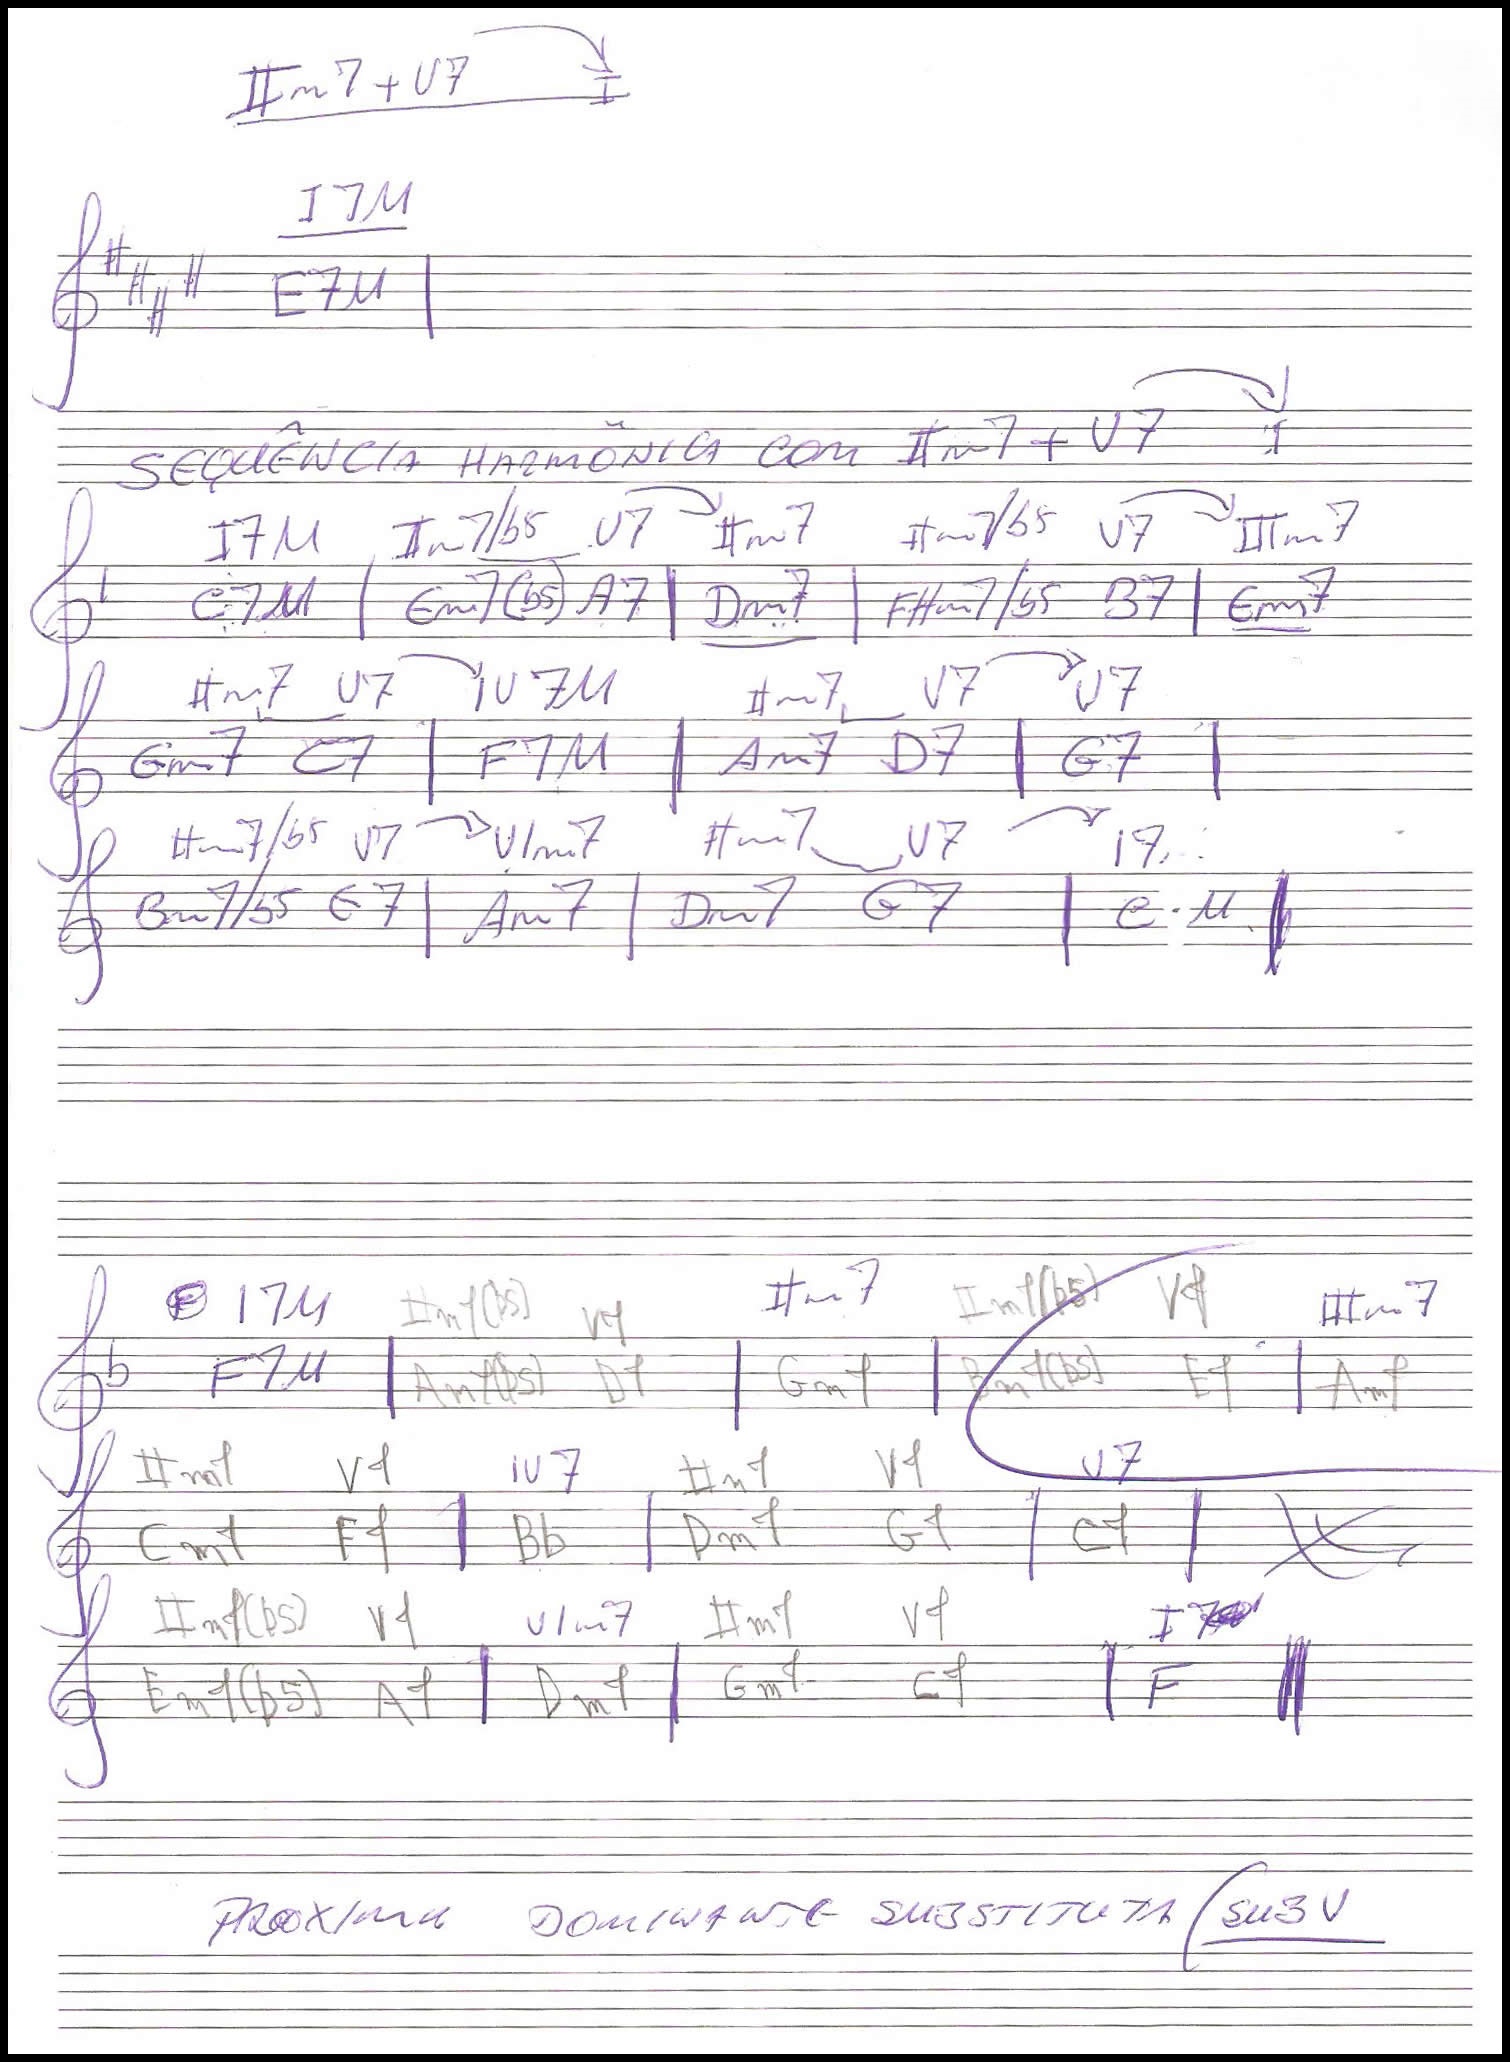 IIm7 + V7 I
I7M
E7M
SEQUÊNCIA HARMÔNICA COM IIm7 + V7 I
I7M IIm7/b5 V7 IIm7 IIm7/b5 V7 IIIm7
C7M Em7(b5) A7 Dm7 F#m7/b5 B7 Em7
IIm7 V7 IV7M IIm7 V7 V7
Gm7 C7 F7M Am7 D7 G7
IIm7/b5 V7 VIm7 IIm7 V7 I7
Bm7/b5 E7 Am7 Dm7 G7 C M
F I7M IIm7(b5) V7 IIm7 IIm7(b5) V7 IIIm7
F7M Am7(b5) D7 Gm7 Bm7(b5) E7 Am7
IIm7 V7 IV7 IIm7 V7 V7
Cm7 F7 Bb Dm7 G7 C7
IIm7(b5) V7 VIm7 IIm7 V7 I7
Em7(b5) A7 Dm7 Gm7 C7 F
PROXIMA DOMINANTE SUBSTITUTA (SUB V